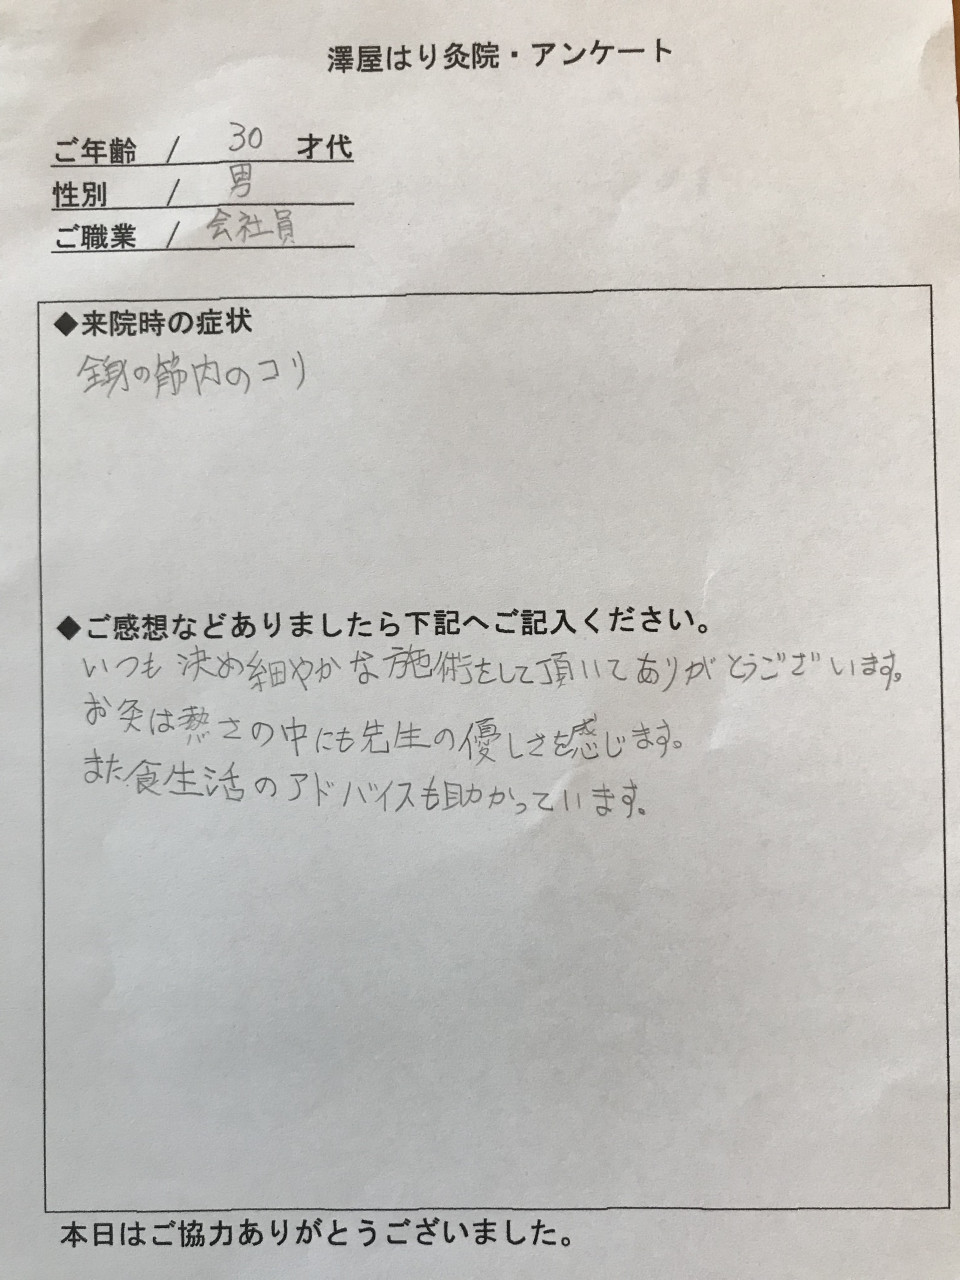 澤屋はり灸院・アンケート
ご年齢 / 30 才代
性別 / 男
ご職業 / 会社員
◆来院時の症状
全身の筋肉のコリ
◆ご感想などありましたら下記へご記入ください。
いつも決め細やかな施術をして頂いてありがとうございます。
お灸は熱さの中にも先生の優しさを感じます。
また食生活のアドバイスも助かっています。
本日はご協力ありがとうございました。